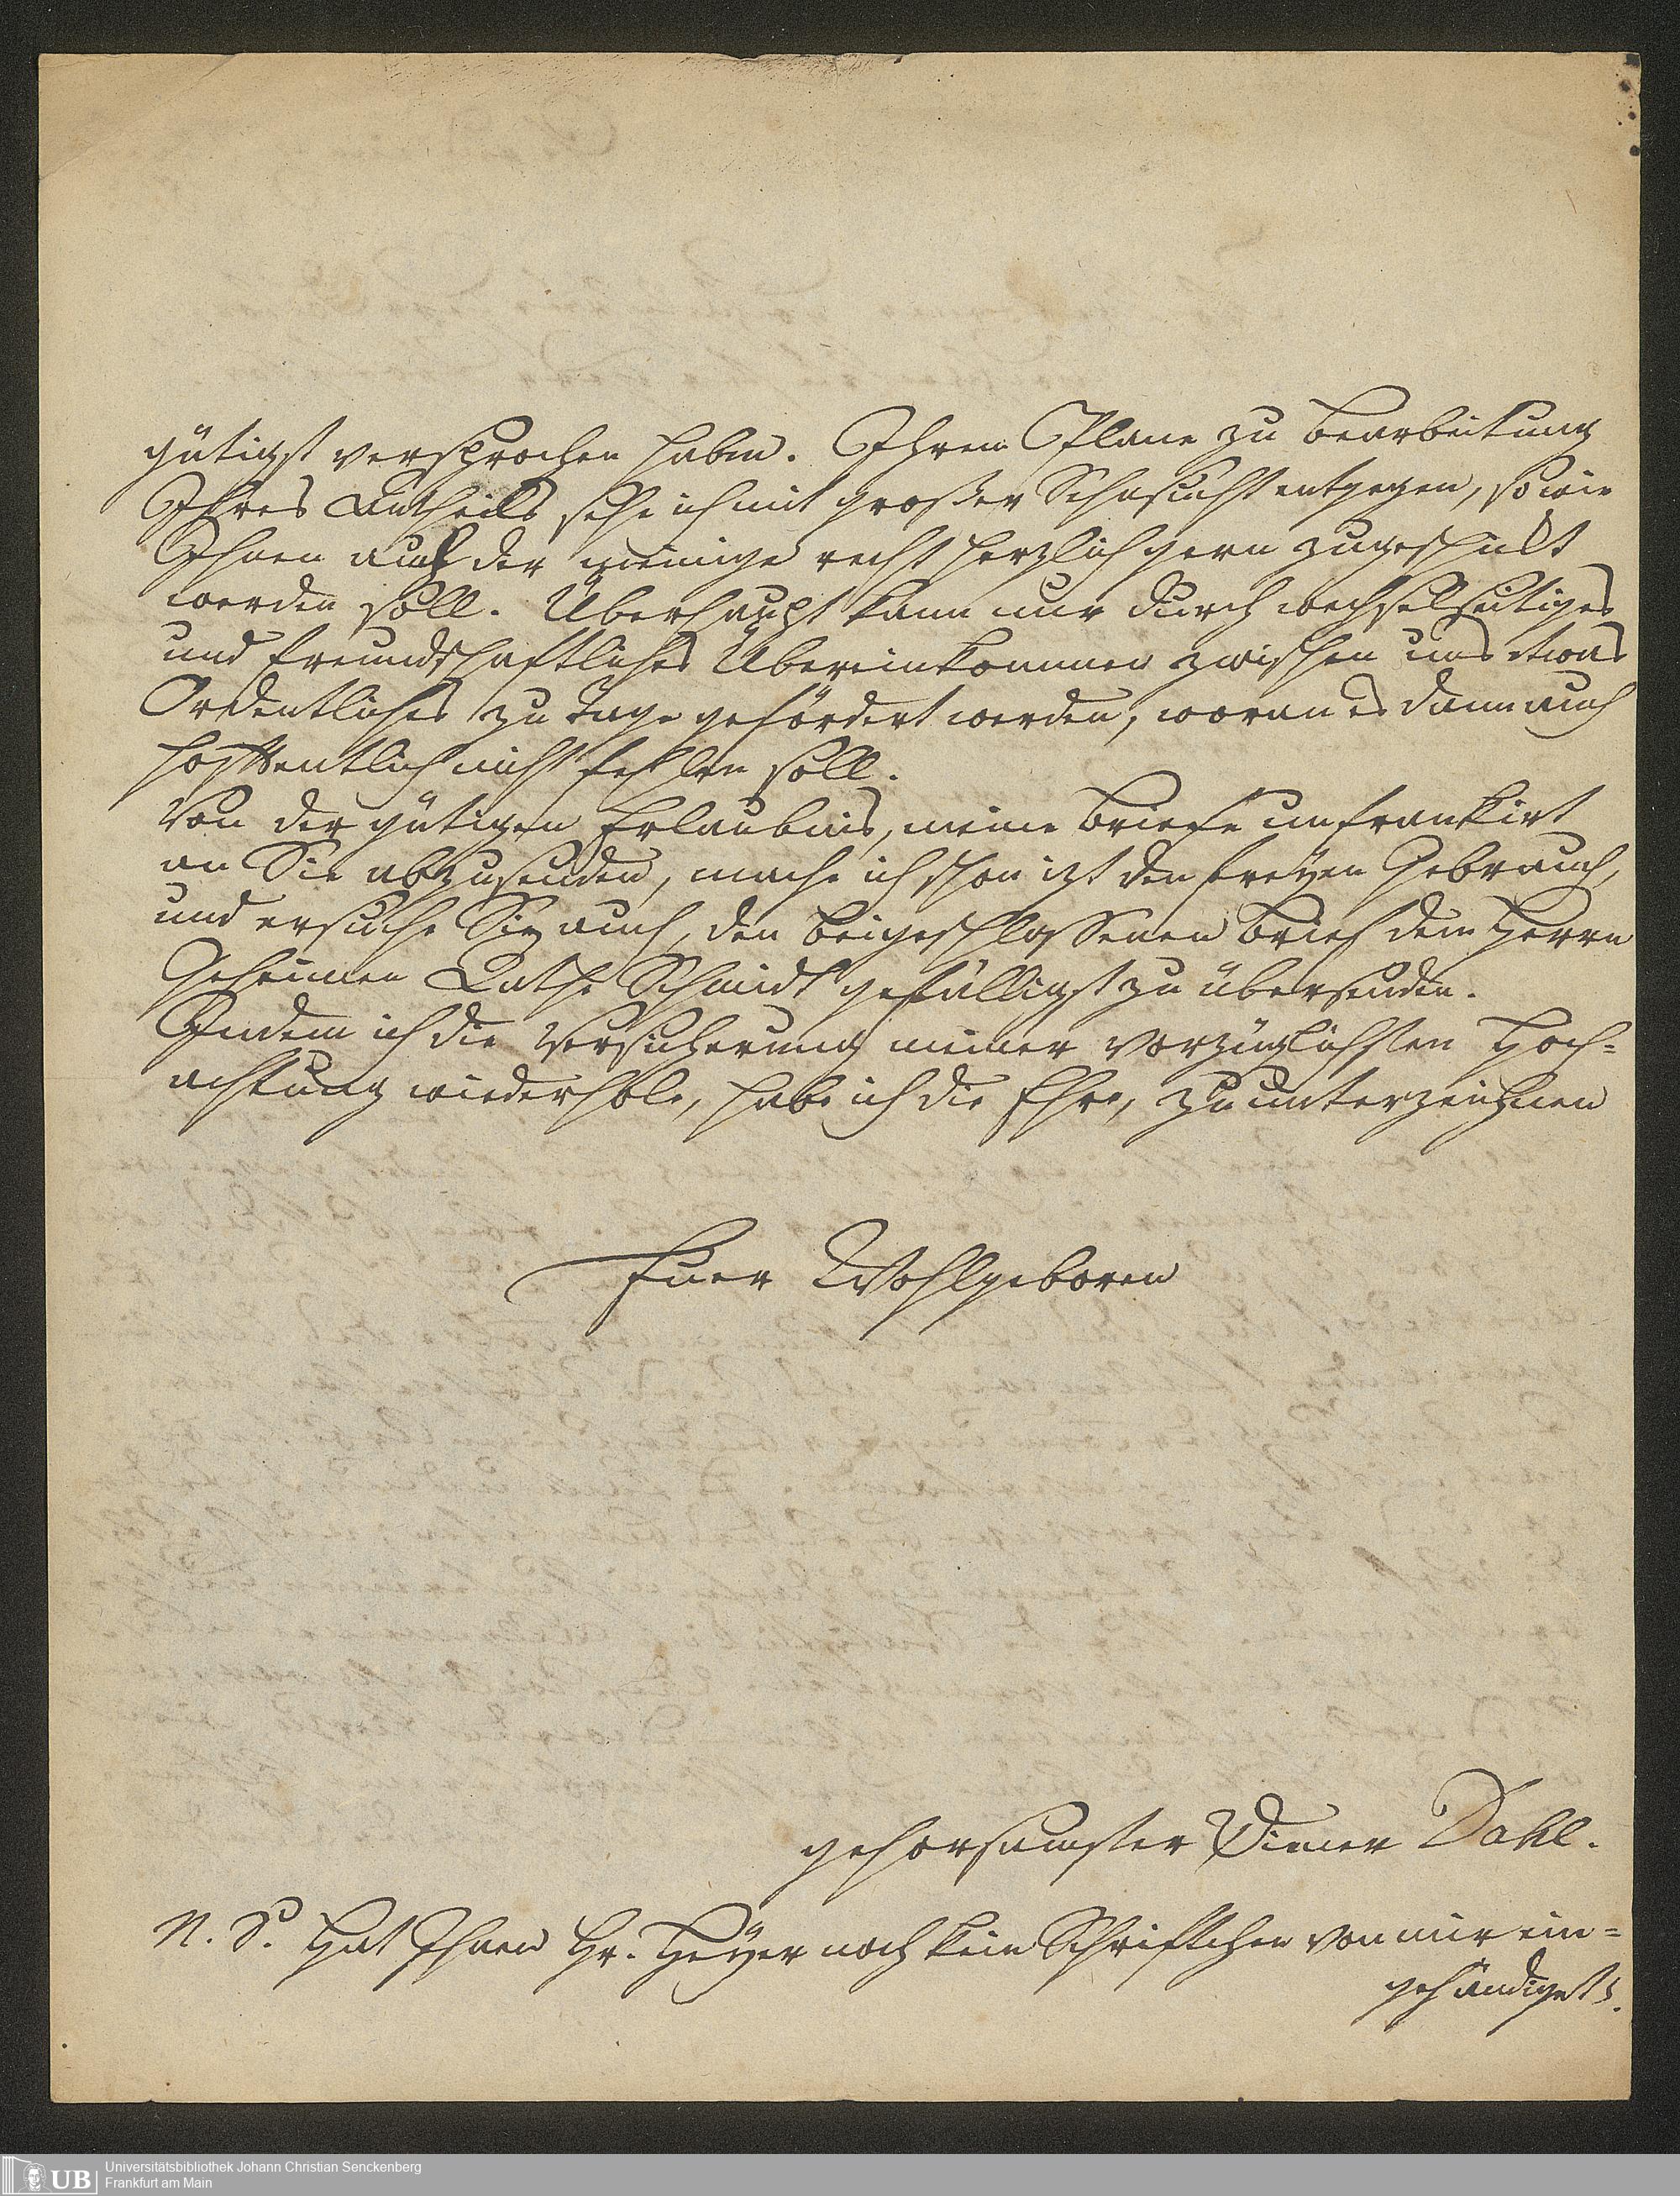 gütigst versprochen haben. Ihrem Plane zu Bearbeitung
Ihres Antheils sehe ich mit großer Sehnsucht entgegen, so wie
Ihnen auch der meinige recht herzlich gern zugeschikt
werden soll. Überhaupt kann nur durch wechselseitiges
und freundschaftliches Übereinkommen zwischen uns etwas
Ordentliches zu Tage gefördert werden, woran es dann auch
hoffentlich nicht fehlen soll.
Von der gütigen Erlaubnis, meine Briefe unfrankirt
an Sie abzusenden, mache ich schon izt den freyen Gebrauch,
und ersuche Sie auch, den beigeschlossenen Brief dem Herrn
Geheimen Rathe Schmidt gefälligst zu übersenden.
Indem ich die Versicherung meiner vorzüglichsten Hoch=
achtung wiederhole, habe ich die Ehre, zu unterzeichnen
Euer Wohlgeboren
gehorsamster Diener Dahl.
N. S. Hat Ihnen Hr. Heyer noch kein Schriftchen von mir ein=
gehändiget?
Universitätsbibliothek Johann Christian Senckenberg
Frankfurt am Main
UB